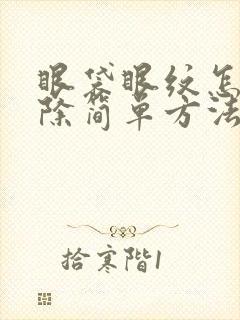 眼袋眼纹怎
除简单方法
拾寒階1